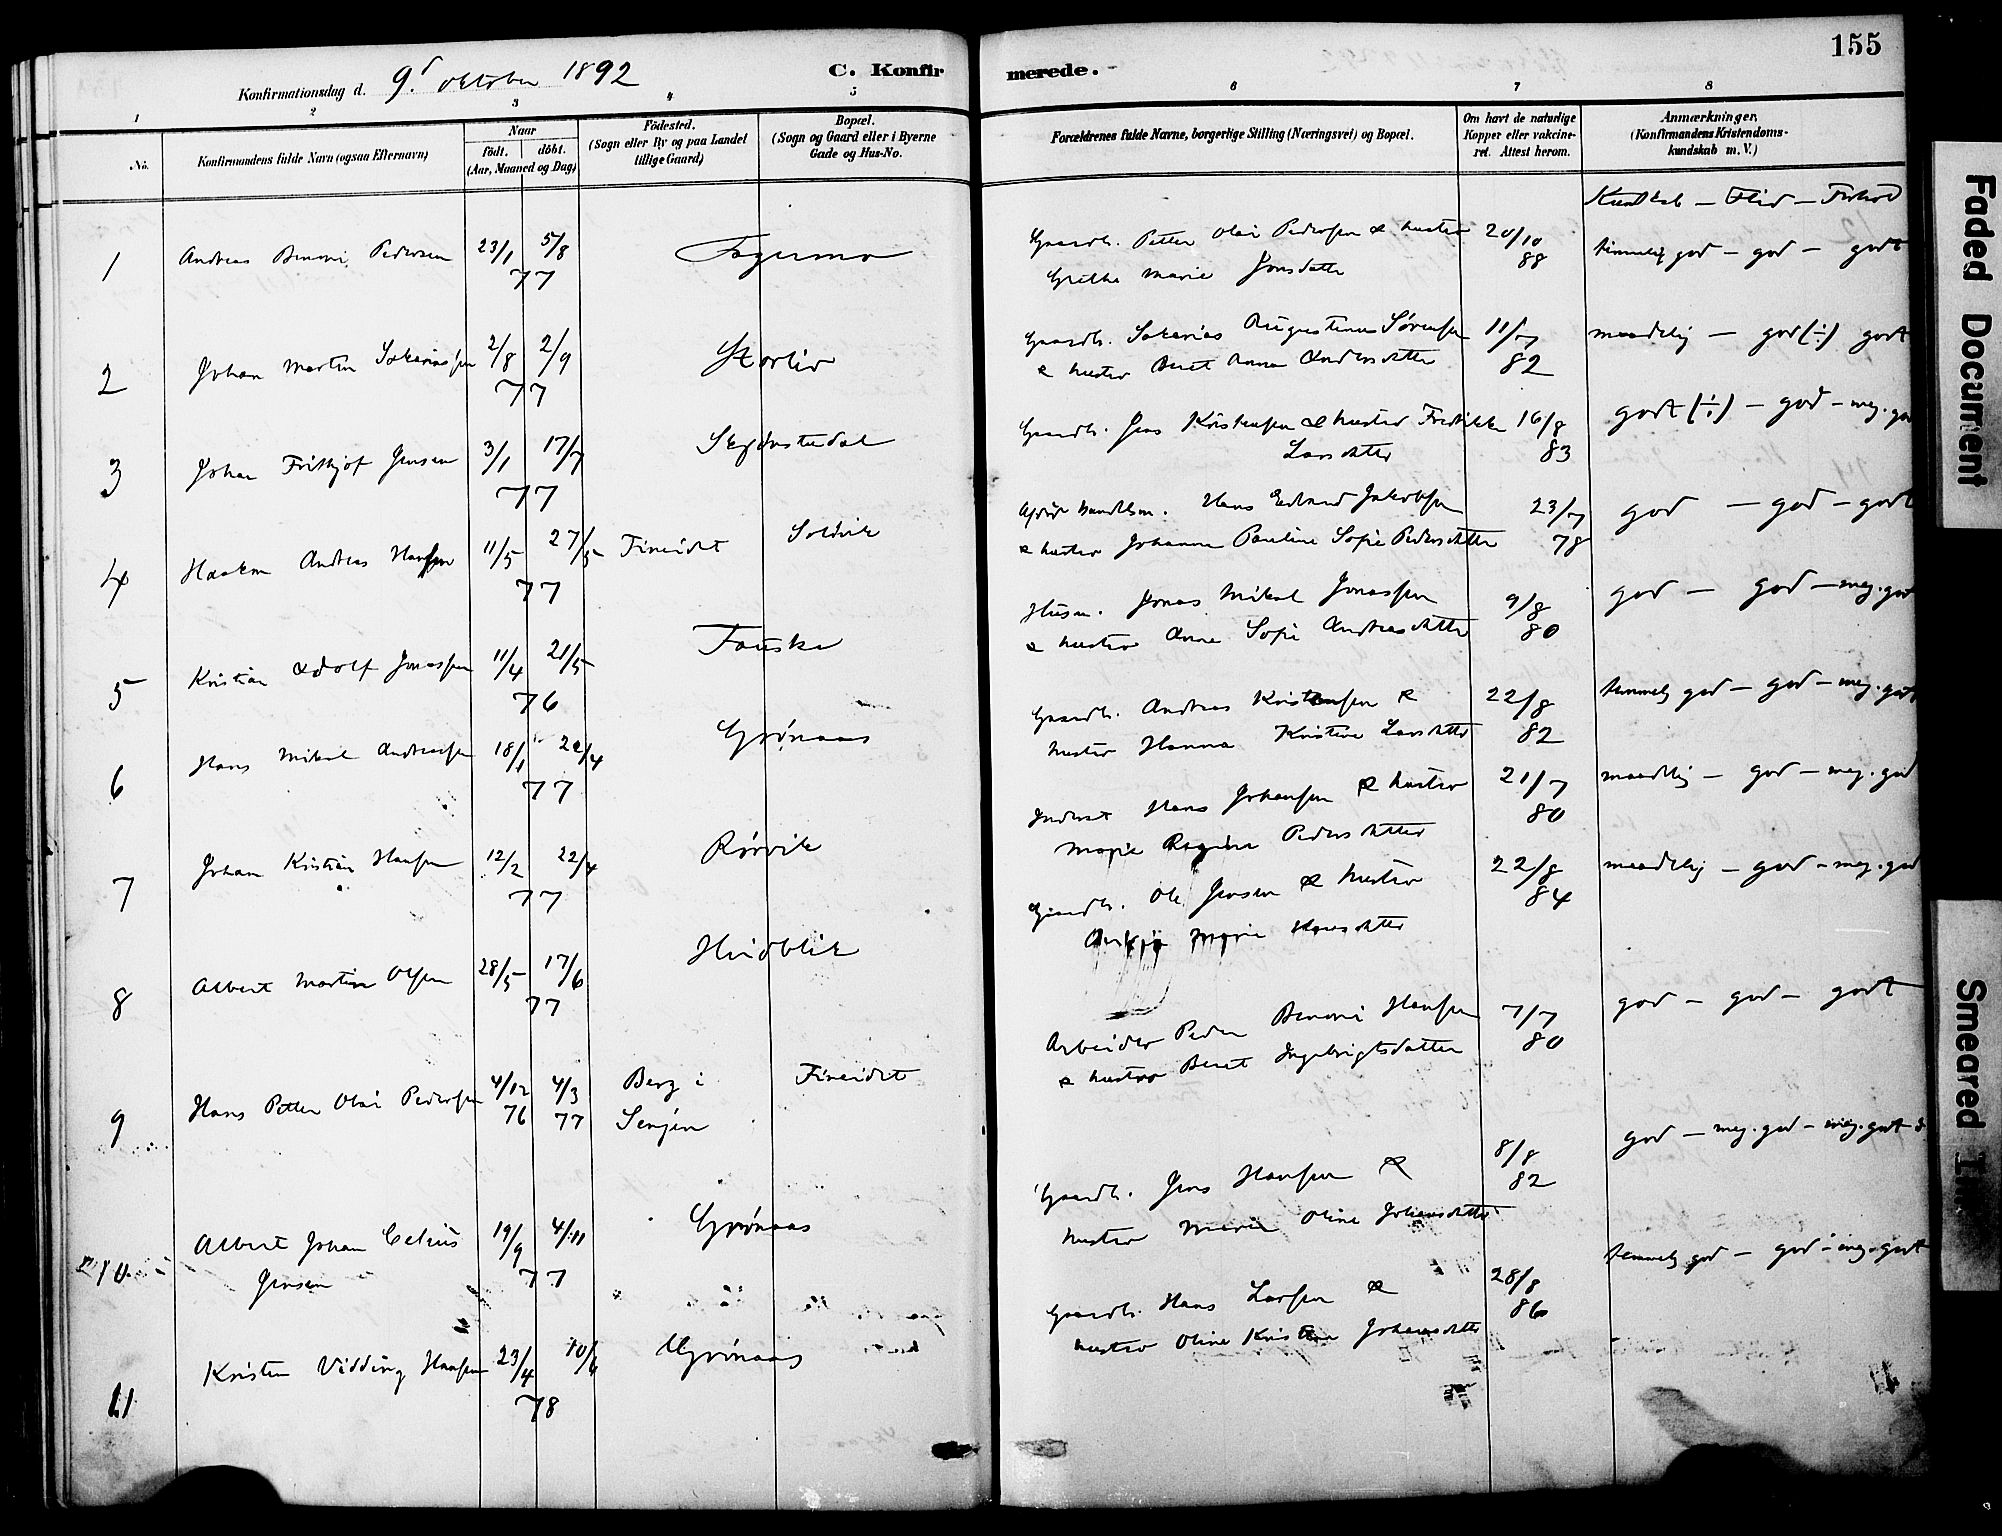 155
Konfirmationsdag d. 9d oktober 1892
C. Konfirmerede.
1 2 3 4 5 6 7 8
No.
Konfirmandens fulde Navn (ogsaa Efternavn)
Naar
födt. döbt.
(Aar, Maaned og Dag)
Födested.
(Sogn eller By og paa Landet
tillige Gaard)
Bopæl.
(Sogn og Gaard eller i Byerne
Gade og Hus-No.
Forældrenes fulde Navne, borgerlige Stilling (Næringsvei) og Bopæl.
Om havt de naturlige
Kopper eller vakcine-
ret. Attest herom.
Anmærkninger,
(Konfirmandens Kristendoms-
kundskab m. V.)
Kundskab — Flid — Forhold
1 Andreas Benoni Pedersen 23/1 5/8 77 Fagermo
Gaardb. Petter Olai Pedersen & hustro
Grethe Marie Jonsdatter
20/10 88
temmelig god — god — godt
2 Johan Martin Sakariassen 2/8 2/9 77 Storlid
Gaardb. Sakarias Augustinus Sørensen
& hustro Beret Anna Andersdatter
11/7 82
maadelig — god (÷) godt
3 Johan Frithjof Jensen 3/1 17/7 77
Gaardb. Jens Kristensen & hustro Fredrikke
Larsdatter
16/8 83
godt (÷) — god — meg. god
4 Haakon Andreas Hansen 11/5 27/5 77 Fineidet Soldvik
Hans Edvard Jakobsen
& hustro Johanna Pauline Sofie Pedersdatter
23/7 78
god — god — godt
5 Kristian Adolf Jonassen 11/4 21/5 76 Fauske
Husm. Jonas Mikal Jonassen
& hustro Anne Sofie Andreasdatter
9/8 80
god — god — meg. godt
6 Hans Mikal Andreassen 18/1 22/4 77 Grønaas
Gaardb. Andreas Kristensen &
hustro Hanna Kristine Larsdatter
22/8 82
temmelig god — god — meg. godt
7 Johan Kristian Hansen 12/2 22/4 77 Rørvik
Inderst Hans Johansen & hustro
Marie Regine Pedersdatter
21/7 80
maadelig — god — meg. god
8 Albert Martin Olsen 28/5 17/6 77 Hvidblik
Gaardb. Ole Jensen & hustro
Marie Hansdatter
22/8 84
maadelig — god — meg. god
9 Hans Petter Olai Pedersen 4/12 76 4/3 77 Berg i Senjen Fineidet
Arbeider Peder Benoni Hansen
& hustro Beret Ingebrigtsdatter
7/7 80
god — god — godt
10 Albert Johan Celius
Jensen
19/9 4/11 77 Grønaas
Gaardb. Jens Hansen &
hustro Marie Oline Johansdatter
8/8 82
god — meg. god — meg. godt
11 Kristen Vidding Hansen 23/4 10/6 78 Grønaas
Gaardb. Hans Larsen &
hustro Oline Kristina Johansdatter
28/8 86
temmelig god — god — meg. godt
Faded Document
Smeared Ink